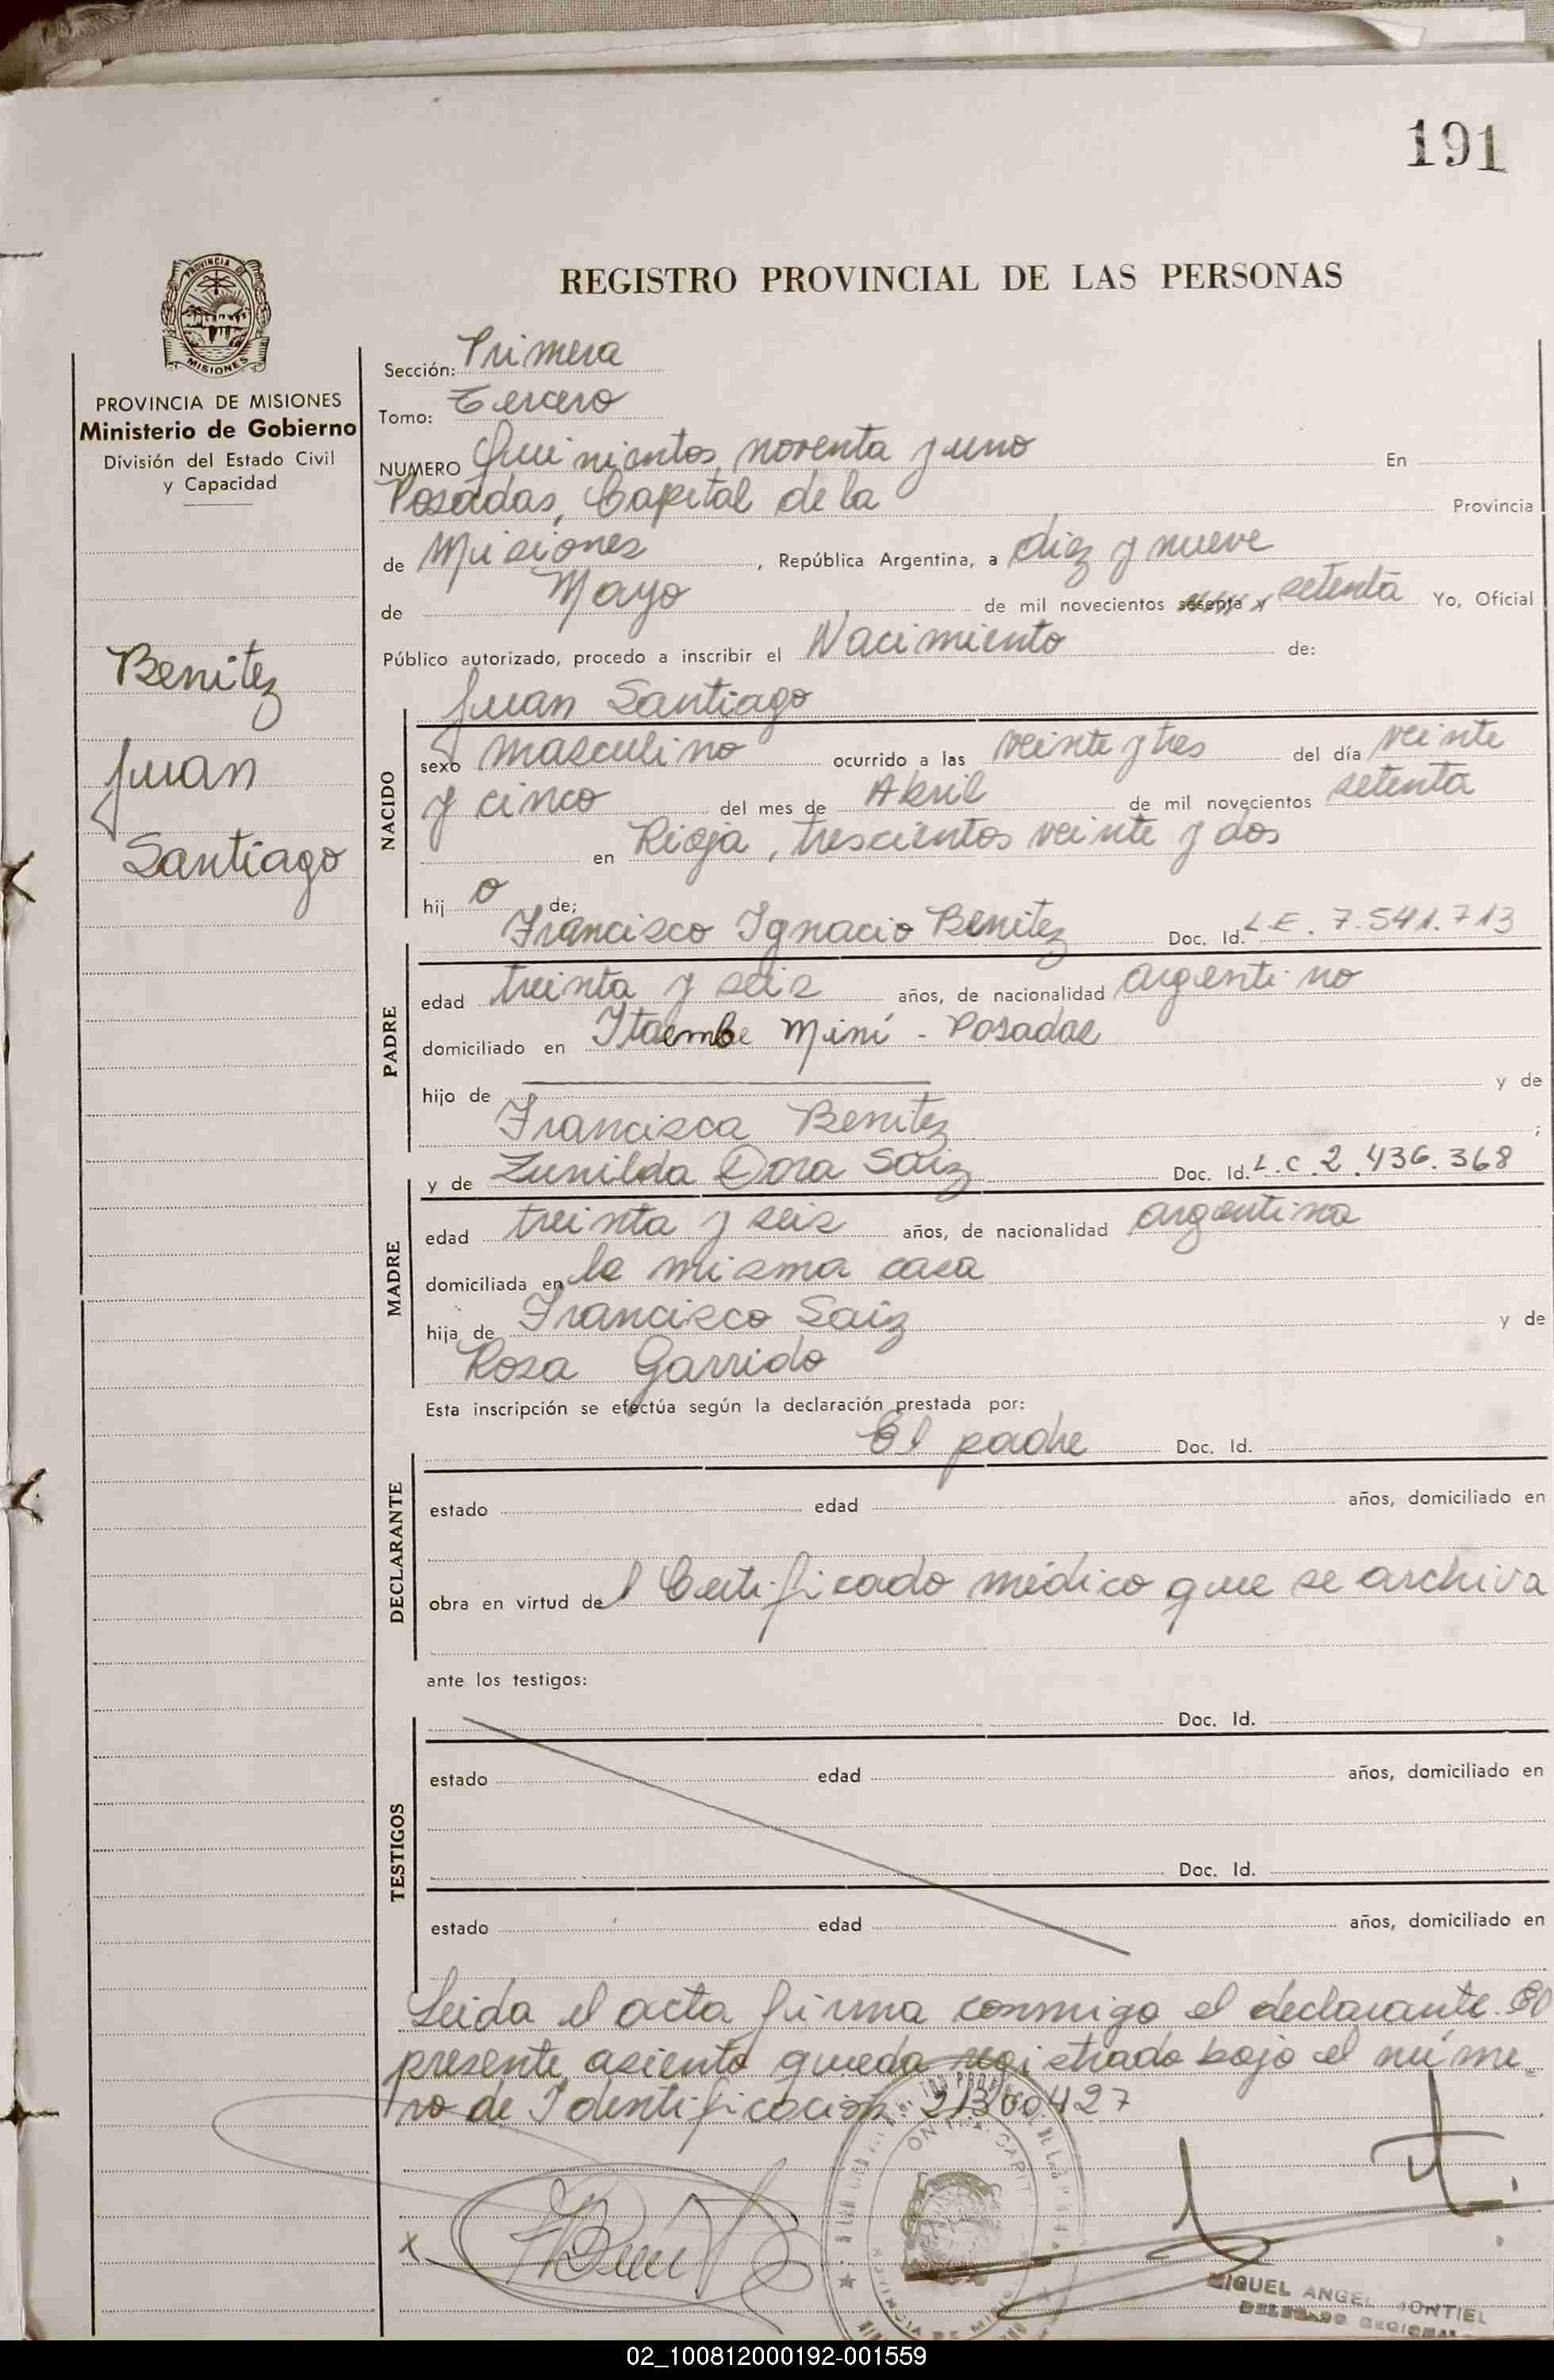 191
REGISTRO PROVINCIAL DE LAS PERSONAS
PROVINCIA DE
MISIONES
PROVINCIA DE MISIONES
Ministerio de Gobierno
División del Estado Civil
y Capacidad
Benitez
Juan
Santiago
Sección: Primera
Tomo: Tercero
NUMERO Quinientos noventa y uno En
Posadas, Capital de la Provincia
de Misiones, República Argentina, a diez y nueve
de Mayo de mil novecientos sesenta y setenta Yo, Oficial
Público autorizado, procedo a inscribir el Nacimiento de:
Juan Santiago
NACIDO
sexo masculino ocurrido a las veinte y tres del día veinte
y cinco del mes de Abril de mil novecientos setenta
en Rioja, trescientos veinte y dos
hij o de;
Francisco Ignacio Benitez Doc. Id. L.E. 7.541.713
PADRE
edad treinta y seis años, de nacionalidad argentino
domiciliado en Itaembe Miní - Posadas
hijo de y de
Francisca Benitez ;
y de Zunilda Dora Saiz Doc. Id. L.C 2.436.368
MADRE
edad treinta y seis años, de nacionalidad argentina
domiciliada en la misma casa
hija de Francisco Saiz y de
Rosa Garrido
Esta inscripción se efectúa según la declaración prestada por:
El padre Doc. Id.
DECLARANTE
estado edad años, domiciliado en
obra en virtud del Certificado médico que se archiva
ante los testigos:
Doc. Id.
TESTIGOS
estado edad años, domiciliado en
Doc. Id.
estado edad años, domiciliado en
Leida el acta firma conmigo el declarante. El
presente asiento queda registrado bajo el núme
ro de Identificación: 21300427
x
MIGUEL ANGEL
DELEGADO REGIONAL
02_100812000192-001559